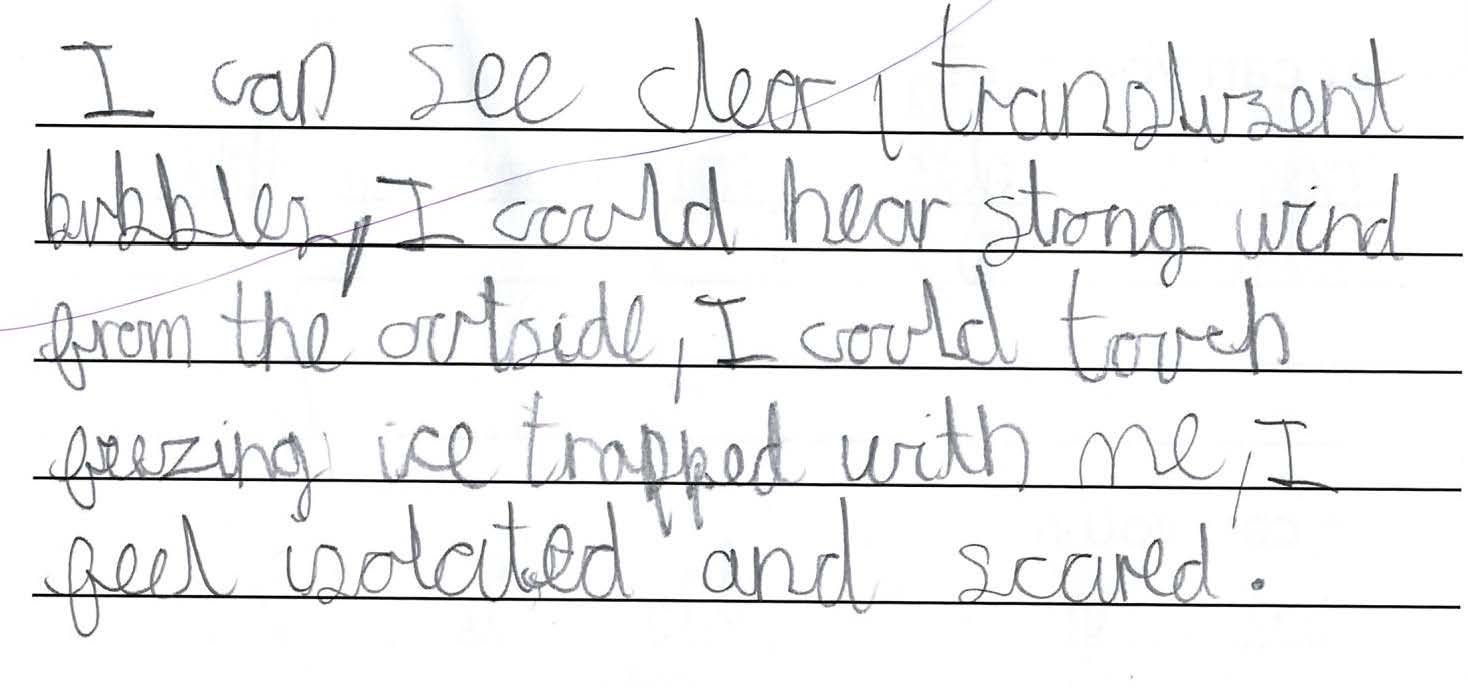 I can see clear,ransluzent
bubbles, I could hear strong wind
from the outside, I could touch
freezing ice trapped with me, I
feel isolated and scared.